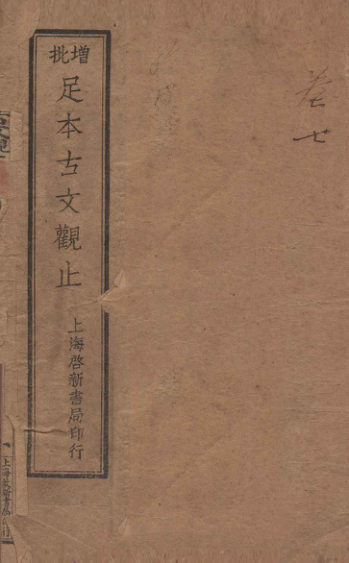 卷七
增批
足本古文觀止
上海啓新書局印行